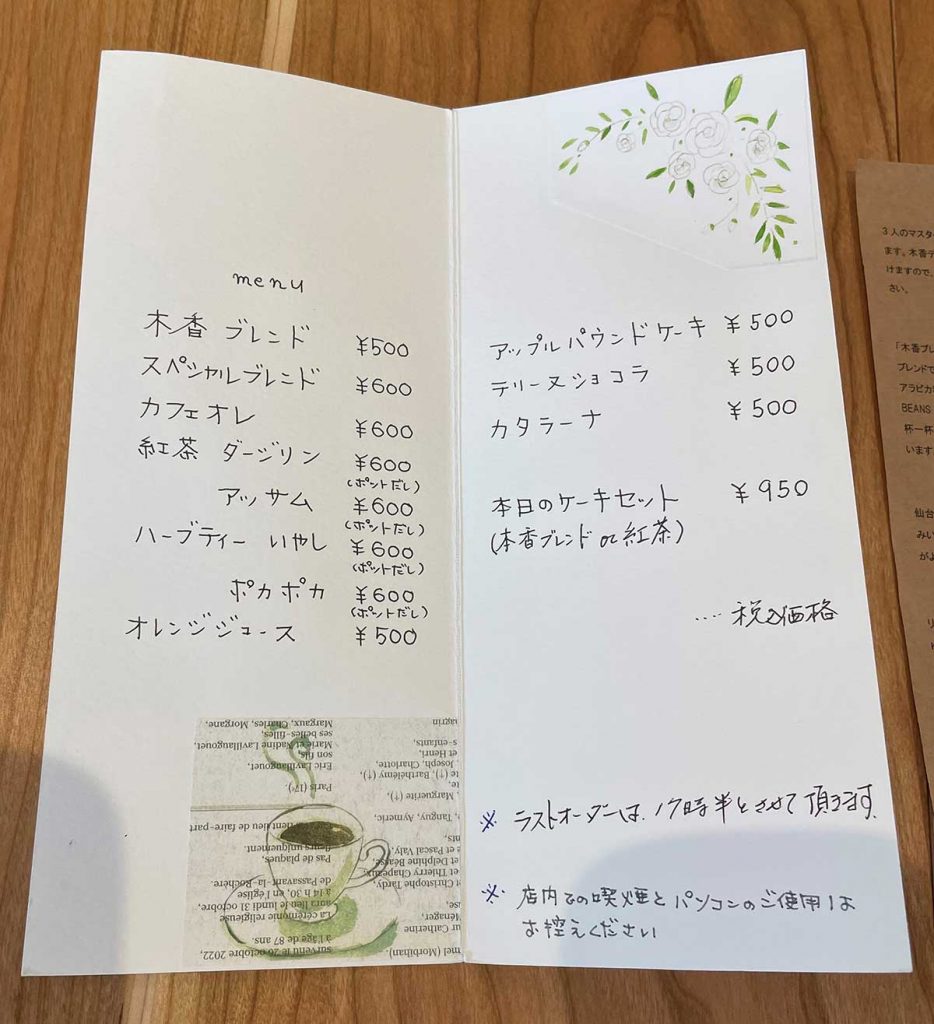 menu
木香 ブレンド ¥500
スペシャルブレンド ¥600
カフェオレ ¥600
紅茶 ダージリン ¥600
(ポットだし)
アッサム ¥600
(ポットだし)
ハーブティー いやし ¥600
(ポットだし)
ポカポカ ¥600
(ポットだし)
オレンジジュース ¥500
アップルパウンドケーキ ¥500
テリーヌショコラ ¥500
カタラーナ ¥500
本日のケーキセット ¥950
(木香ブレンド or 紅茶)
... 税込価格
※ ラストオーダーは、17時半とさせて頂きます。
※ 店内での喫煙とパソコンのご使用は
お控えください
survenu le 26 octobre 2022,
à l'âge de 87 ans.
La cérémonie religieuse
aura lieu le lundi 31 octobre,
à 14 h 30, en l'église
de Passavant-la-Rochère.
Pas de plaques,
fleurs uniquement.
tient lieu de faire-part
Paris (17e).
Eric Lavillaugouet,
son fils,
Marie et Nadine Lavillaugouet,
ses belles-filles,
Margaux, Charles, Morgane,
mel (Morbihan).
Catherine
Ménager,
Christophe Tardy,
et Thierry Chapeaux,
et Delphine Beasse,
et Pascal Valy,
, Tanguy, Aymeric,
, Marguerite (†),
te (†), Barthélémy (†),
Joseph, Charlotte,
et Henri,
s-enfants,
3人のマスタ
ます。木香デ
けますので、
さい。
「木香ブレ
ブレンドで
アラビカ
BEANS
杯一杯
います。
仙台
みい
がよ